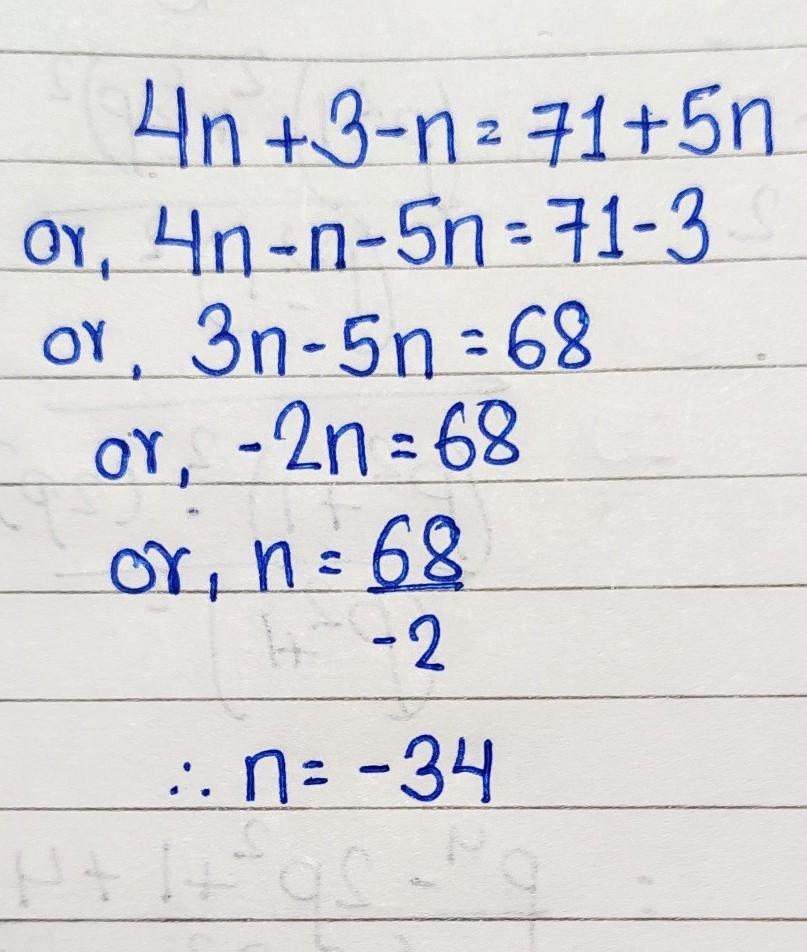 4n + 3 - n = 71 + 5n
or, 4n - n - 5n = 71 - 3
or, 3n - 5n = 68
or, -2n = 68
or, n = 68
-2
∴ n = -34